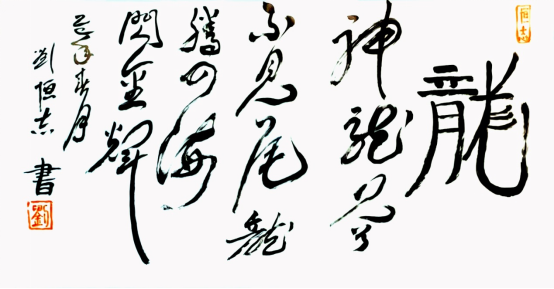 龍
神龍
不見尾龍
騰四海
閃金輝
年春月
劉恒志書
劉